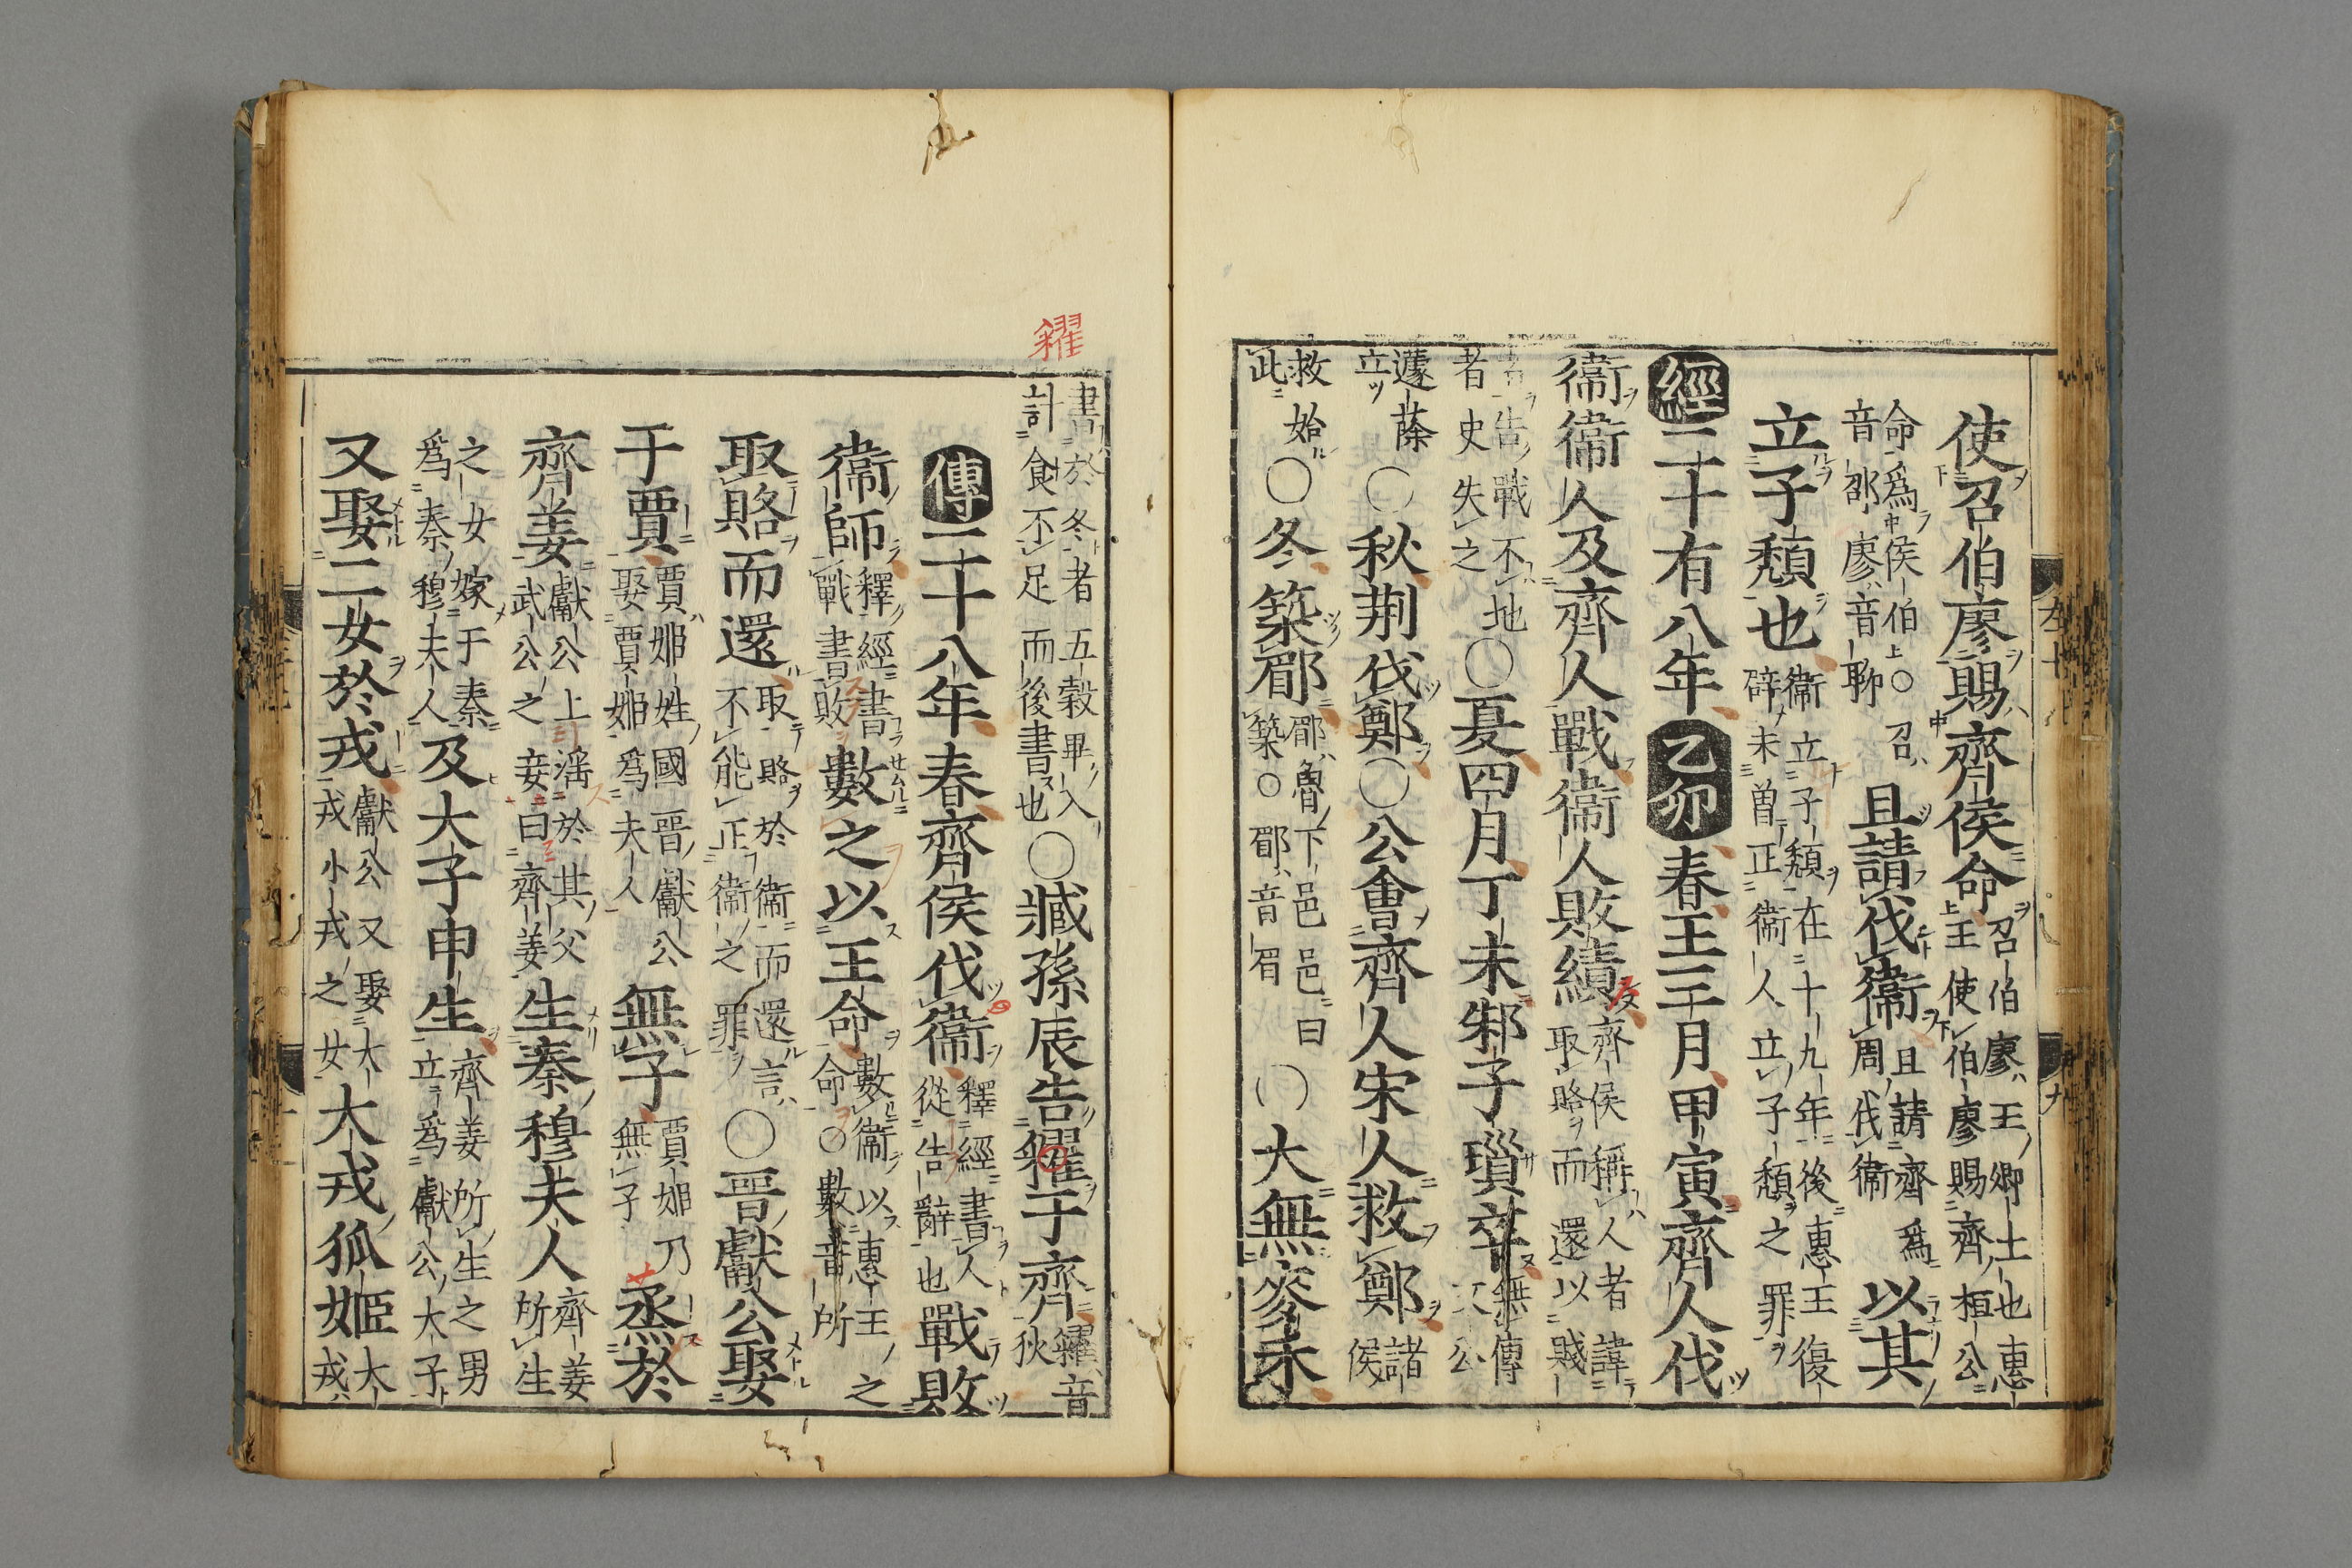 使召伯廖賜齊侯命召伯廖王卿士也惠王使伯廖賜齊桓公
命爲侯伯○召音邵廖音聊且請伐衞且請齊爲周伐衞以其
立子頽也衞立子頽在十九年後惠王復辟未曽正衞人立子頽之罪
經二十有八年乙卯春王三月甲寅齊人伐
衞衞人及齊人戰衞人敗績齊侯稱人者諱取賂而還以賤
者告戰不地者史失之○夏四月丁未邾子瑣卒無傳文公
蘧蒢立○秋荆伐鄭○公會齊人宋人救鄭諸侯
救始此○冬築郿郿魯下邑邑曰築○郿音眉○大無麥禾
糴
書於冬者五穀畢入計食不足而後書也○臧孫辰告糴于齊糴音狄
傳二十八年春齊侯伐衞釋經書人從告辭也戰敗
衞師釋經書戰書敗數之以王命數衞以惠王之命○數音所
取賂而還取賂於衞而還言不能正衞之罪○晉獻公娶
于賈賈姬姓國晉獻公娶賈姬爲夫人無子賈姬乃無子烝於
齊姜獻公上淫於其父武公之妾曰齊姜生秦穆夫人齊姜所生
之女嫁于秦爲秦穆夫人及大子申生齊姜所生之男立爲獻公大子
又娶二女於戎獻公又娶大戎小戎之女大戎狐姬大戎